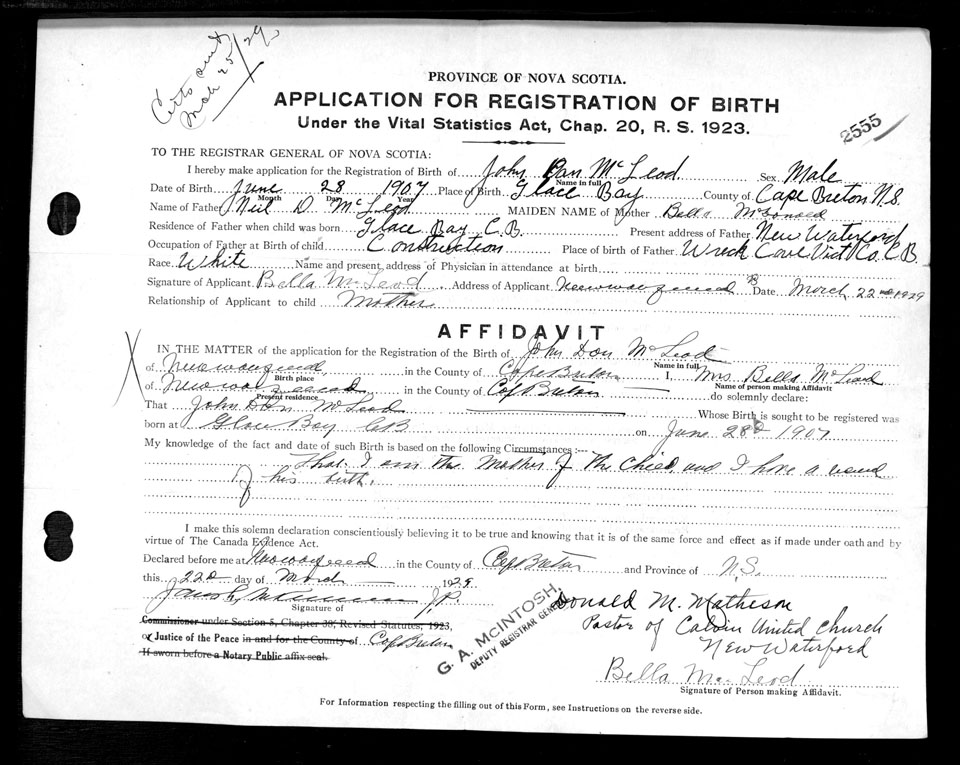 Certs sent
Mar 25/29
PROVINCE OF NOVA SCOTIA.
APPLICATION FOR REGISTRATION OF BIRTH
Under the Vital Statistics Act, Chap. 20, R. S. 1923.
2555
TO THE REGISTRAR GENERAL OF NOVA SCOTIA:
I hereby make application for the Registration of Birth of John Dan McLeod Sex Male
Name in full
Date of Birth June 28 1907 Place of Birth Glace Bay County of Cape Breton N.S.
Month Day Year
Name of Father Neil D McLeod MAIDEN NAME of Mother Bella McDonald
Residence of Father when child was born Glace Bay C.B. Present address of Father New Waterford
Occupation of Father at Birth of child Construction Place of birth of Father Wreck Cove Vict Co. C B.
Race White Name and present address of Physician in attendance at birth
Signature of Applicant Bella McLeod Address of Applicant Date March 22nd 1929
Relationship of Applicant to child Mother
AFFIDAVIT
IN THE MATTER of the application for the Registration of the Birth of John Dan McLeod
Name in full
of in the County of Cape Breton I, Mrs Bella McLeod
Birth place Name of person making Affidavit
of in the County of Cape Breton do solemnly declare:
Present residence
That John Dan McLeod Whose Birth is sought to be registered was
born at Glace Bay CB on June 28 1907
My knowledge of the fact and date of such Birth is based on the following Circumstances :—
That I am the Mother of the child and I have a record
of his birth.
I make this solemn declaration conscientiously believing it to be true and knowing that it is of the same force and effect as if made under oath and by
virtue of The Canada Evidence Act.
Declared before me at in the County of Cape Breton and Province of N.S.
this 22d day of March 1929
J.P.
Signature of
Commissioner under Section 5, Chapter 38, Revised Statutes, 1923,
or Justice of the Peace in and for the County of Cape Breton
If sworn before a Notary Public affix seal.
G. A. McINTOSH,
DEPUTY REGISTRAR GENERAL
Donald M. Matheson
Pastor of Calvin United Church
New Waterford
Bella McLeod
Signature of Person making Affidavit.
For Information respecting the filling out of this Form, see Instructions on the reverse side.